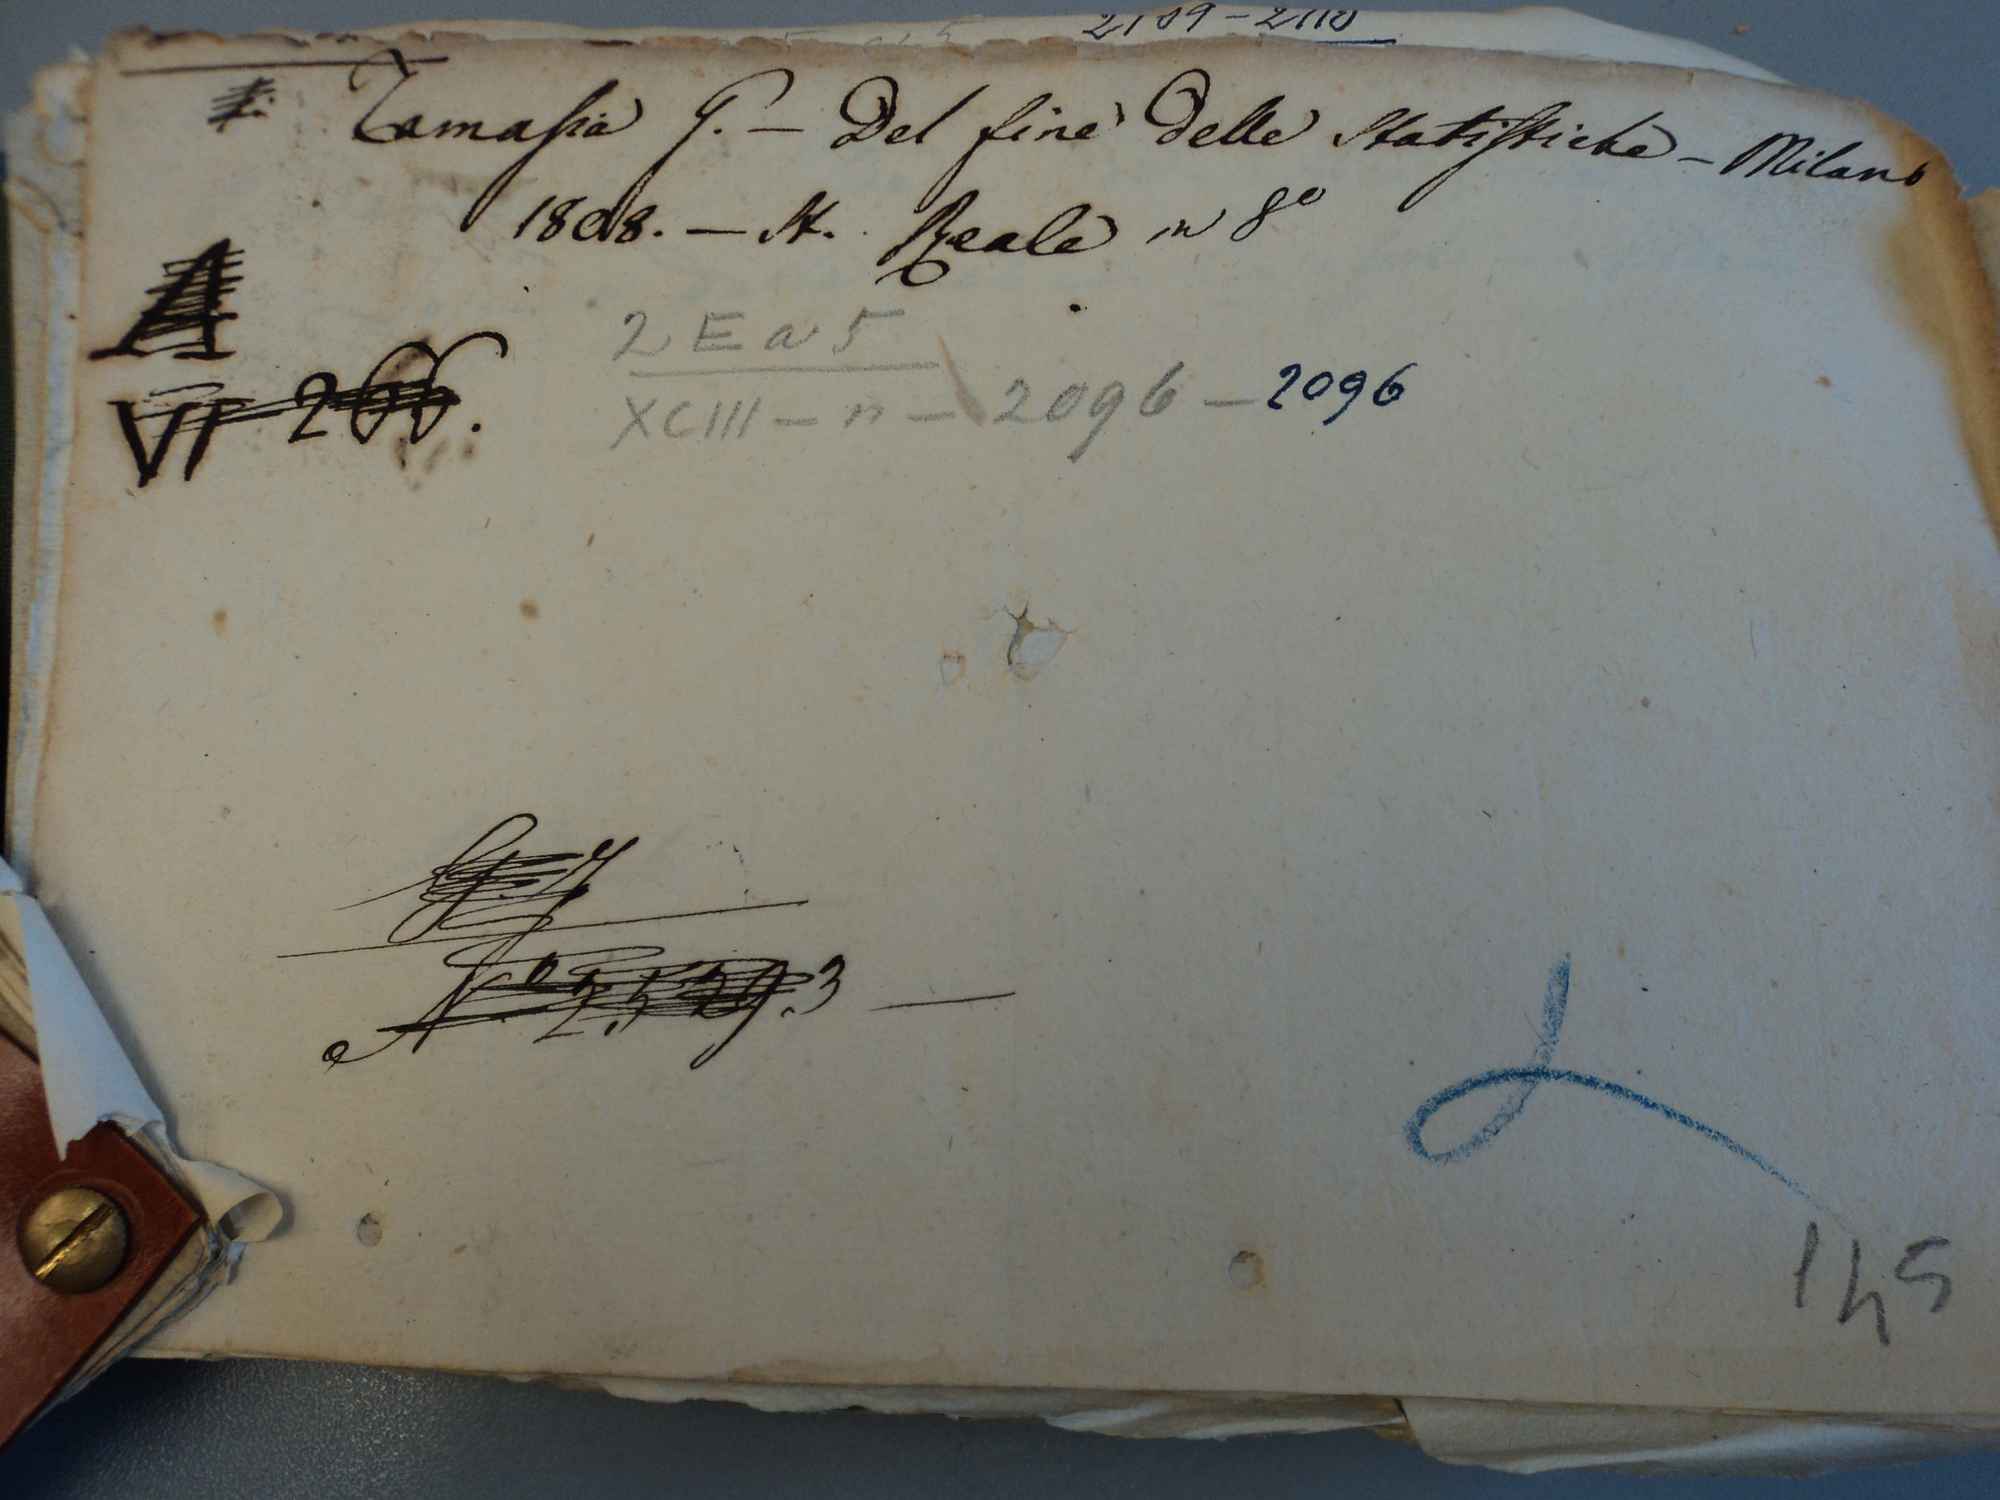 2109 - 2110
Tamassia G. - Del fine delle Statistiche - Milano
1808. - St. Reale in 8º
A
VI 266.
2 E a 5
XCIII - n - 2096 - 2096
145